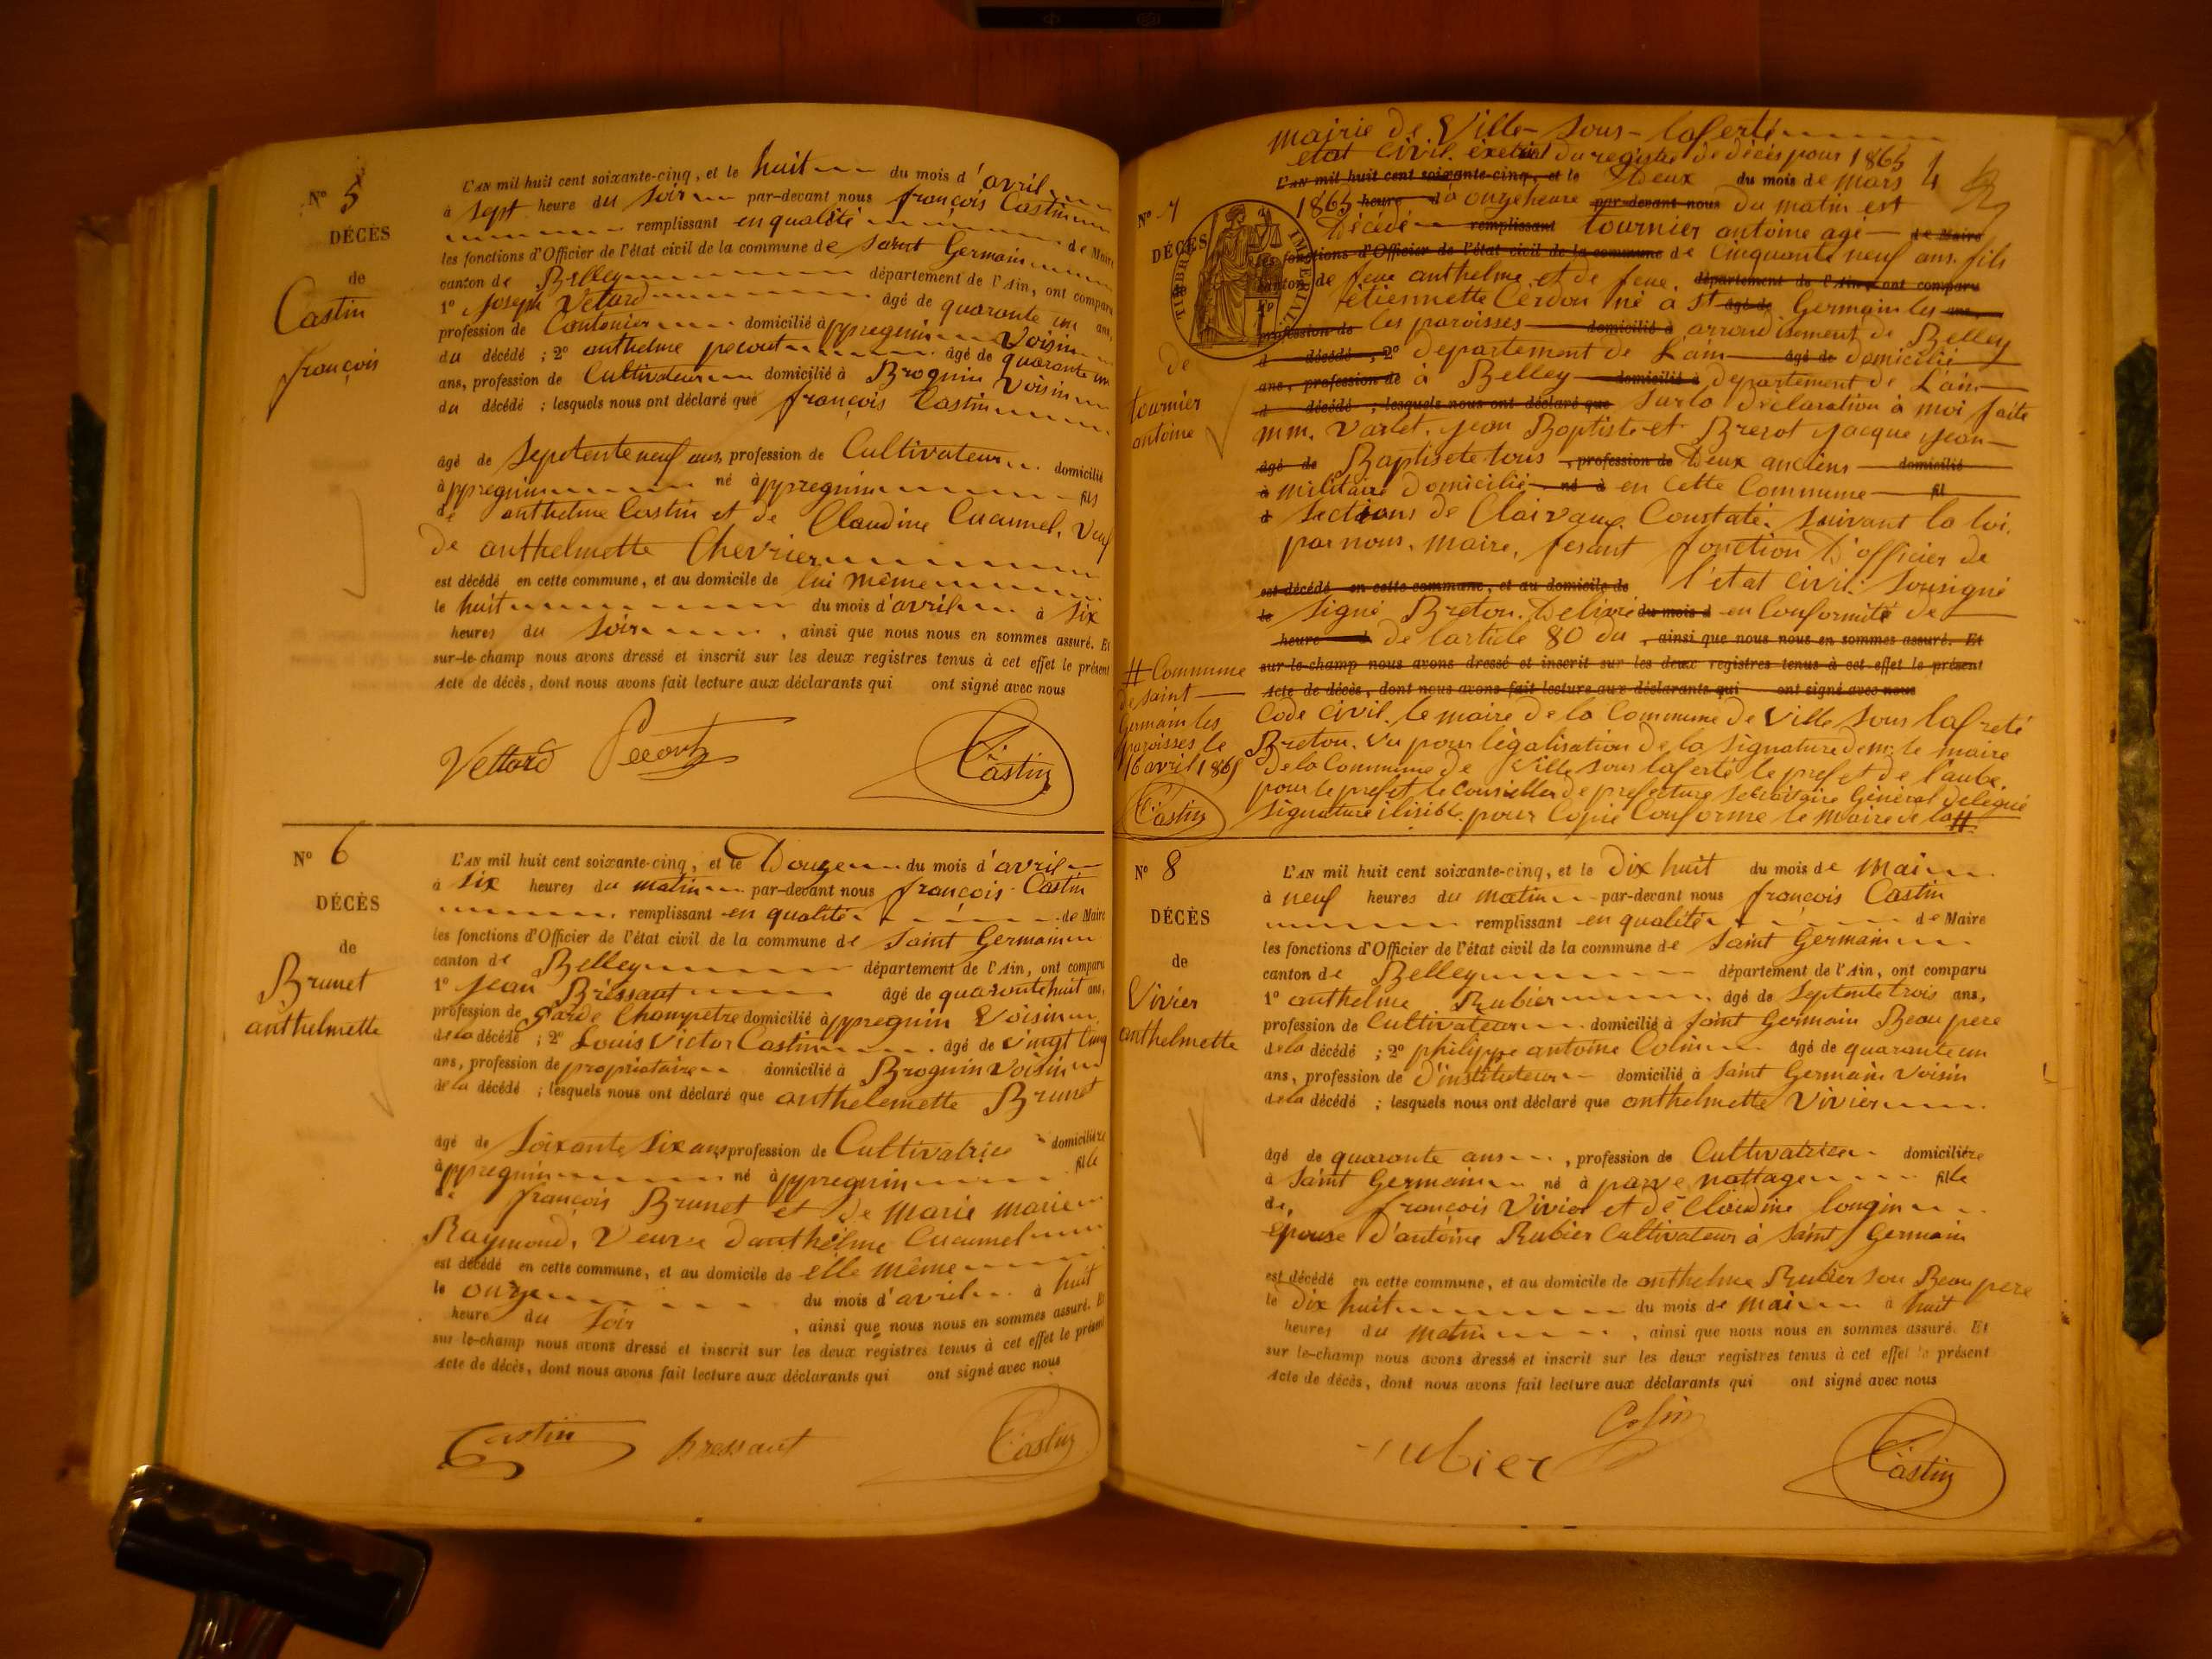 N° 5
DÉCÈS
de
Castin
françois
L'AN mil huit cent soixante-cinq, et le huit du mois d'avril
à sept heure du soir par-devant nous françois Castin
remplissant en qualité de Maire
les fonctions d'Officier de l'état civil de la commune de saint Germain
canton de Belley département de l'Ain, ont comparu
1° Joseph Vetard âgé de quarante un ans,
profession de Contonier domicilié à ppregnin Voisin
du décédé ; 2° anthelme pecout âgé de quarante un
ans, profession de Cultivateur domicilié à Brognin Voisin
du décédé ; lesquels nous ont déclaré que françois Castin
âgé de septente neuf ans profession de Cultivateur domicilié
à ppregnin né à ppregnin fils
de anthelme Castin et de Claudine Cucumel, Veuf
de anthelmette Chevrier
est décédé en cette commune, et au domicile de lui même
le huit du mois d'avril à six
heures du soir , ainsi que nous nous en sommes assuré. Et
sur-le-champ nous avons dressé et inscrit sur les deux registres tenus à cet effet le présent
Acte de décès, dont nous avons fait lecture aux déclarants qui ont signé avec nous
Vettard Pecout Castin
N° 6
DÉCÈS
de
Brunet
anthelmette
L'AN mil huit cent soixante-cinq, et le Douze du mois d'avril
à six heures du matin par-devant nous françois Castin
remplissant en qualité de Maire
les fonctions d'Officier de l'état civil de la commune de saint Germain
canton de Belley département de l'Ain, ont comparu
1° Jean Bressant âgé de quarante huit ans,
profession de garde Champetre domicilié à ppregnin Voisin
de la décédé ; 2° Louis Victor Castin âgé de vingt Cinq
ans, profession de propriataire domicilié à Brognin Voisin
de la décédé ; lesquels nous ont déclaré que anthelemette Brunet
âgé de soixante six ans profession de Cultivatrice domicilière
à ppregnin né à ppregnin fille
de françois Brunet et de marie marie
Raymond, Veuve d'anthelme Cucumel
est décédé en cette commune, et au domicile de elle même
le onze du mois d'avril à huit
heure du soir , ainsi que nous nous en sommes assuré. Et
sur le-champ nous avons dressé et inscrit sur les deux registres tenus à cet effet le présent
Acte de décès, dont nous avons fait lecture aux déclarants qui ont signé avec nous
Castin Bressant Castin
mairie de Ville-sous-laferté
etat civil. extrait du registre de décès pour 1865
L'AN mil huit cent soixante-cinq, et le Deux du mois de mars
N° 7
1865 heure à onze heure par-devant nous du matin est
Décédé remplissant tournier antoine agé de Maire
DÉCÈS
TIMBRE IMPÉRIAL
les fonctions d'Officier de l'état civil de la commune de Cinquante neuf ans. fils
canton de feue anthelme et de feue. département de l'Ain, ont comparu
étiennette Cerdon né à St âgé de Germain les ans,
profession de les paroisses domicilié à arrondissement de Belley
d décédé ; 2° departement de L'ain âgé de domicilié
de
ans, profession de à Belley domicilié à departement de L'ain
tournier
antoine
d décédé ; lesquels nous ont déclaré que sur la déclaration à moi faite
mm. Varlet. jean Baptiste et Brezot jacque jean
âgé de Baptiste tous , profession de deux anciens domicilié
à militaire domicilié né à en cette Commune fil
d sections de Clairvaux. Constaté. suivant la loi.
par nous. maire, fesant fonction d'officier de
est décédé en cette commune, et au domicile de l'etat civil. sousigné
le signé Breton. Délivré du mois d en Conformité de
heure d de l'article 80 du , ainsi que nous nous en sommes assuré. Et
sur-le-champ nous avons dressé et inscrit sur les deux registres tenus à cet effet le présent
Acte de décès, dont nous avons fait lecture aux déclarants qui ont signé avec nous
Code civil. le maire de la Commune de Ville sous lafreté
Breton. Vu pour légalisation de la signature de mr le maire
de la Commune de Ville sous laferté le prefet de l'aube.
pour le prefet le Conseiller de prefecture secraitaire Général délégué
signature ilisible. pour Copie Conforme le maire de la #
# Commune
de saint
Germain les
paroisses le
16 avril 1865
Castin
N° 8
DÉCÈS
de
Vivier
anthelmette
L'AN mil huit cent soixante-cinq, et le Dix huit du mois de mai
à neuf heures du matin par-devant nous françois Castin
remplissant en qualité de Maire
les fonctions d'Officier de l'état civil de la commune de saint Germain
canton de Belley département de l'Ain, ont comparu
1° anthelme Rubier âgé de septente trois ans,
profession de Cultivateur domicilié à saint Germain Beau pere
de la décédé ; 2° philippe antoine Colin âgé de quarante un
ans, profession de d'instituteur domicilié à saint Germain Voisin
de la décédé ; lesquels nous ont déclaré que anthelmette Vivier
âgé de quarante ans , profession de Cultivatrice domicilière
à saint Germain né à parve nattage fille
de, françois Vivier et de Claudine longin
épouse d'antoine Rubier Cultivateur à saint Germain
est décédé en cette commune, et au domicile de anthelme Rubier son Beau pere
le dix huit du mois de mai à huit
heures du matin , ainsi que nous nous en sommes assuré. Et
sur le-champ nous avons dressé et inscrit sur les deux registres tenus à cet effet le présent
Acte de décès, dont nous avons fait lecture aux déclarants qui ont signé avec nous
rubier Colin Castin